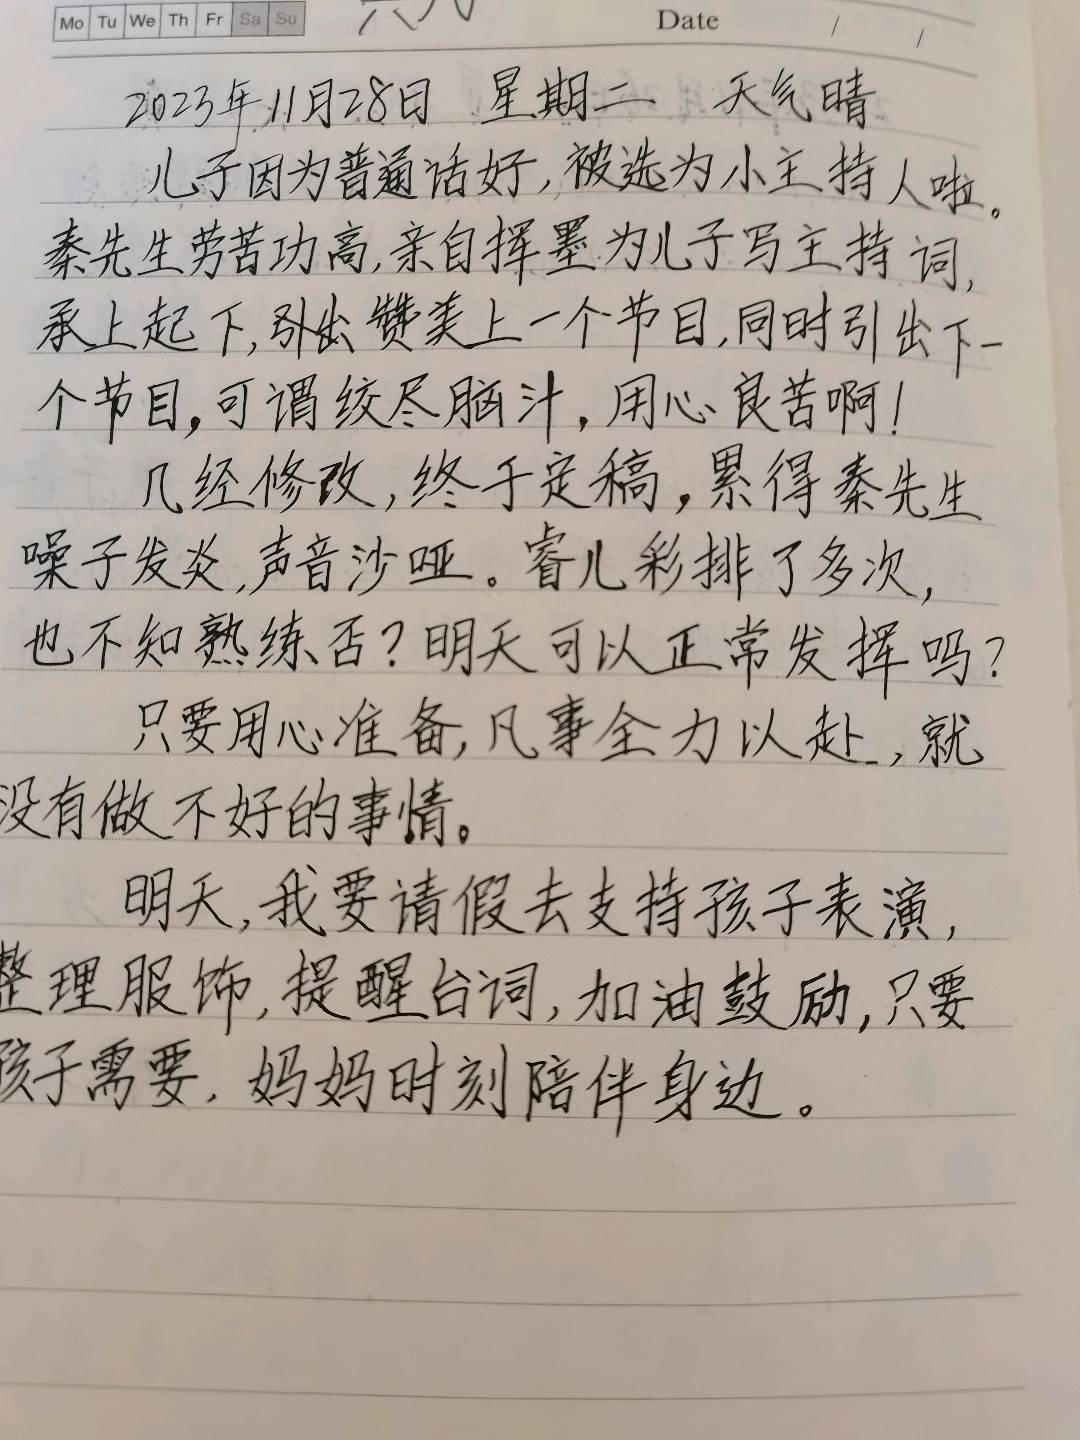 Mo Tu We Th Fr Sa Su
Date / /
2023年11月28日 星期二 天气晴
儿子因为普通话好,被选为小主持人啦。
秦先生劳苦功高,亲自挥墨为儿子写主持词,
承上起下,引出赞美上一个节目,同时引出下一
个节目,可谓绞尽脑汁,用心良苦啊!
几经修改,终于定稿,累得秦先生
噪子发炎,声音沙哑。睿儿彩排了多次,
也不知熟练否?明天可以正常发挥吗?
只要用心准备,凡事全力以赴,就
没有做不好的事情。
明天,我要请假去支持孩子表演,
整理服饰,提醒台词,加油鼓励,只要
孩子需要,妈妈时刻陪伴身边。